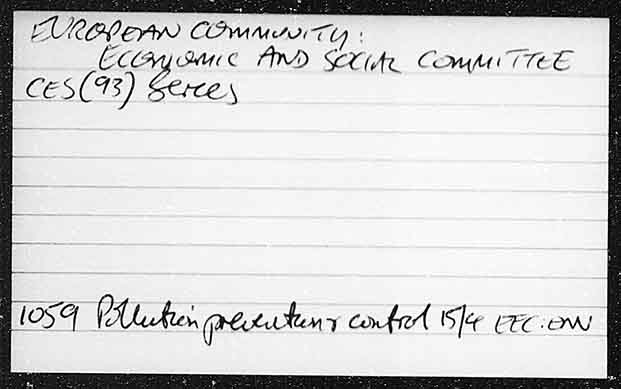 EUROPEAN COMMUNITY:
ECONOMIC AND SOCIAL COMMITTEE
CES(93) Series
1059 Pollution prevention & control 15/4 EEC:ENV